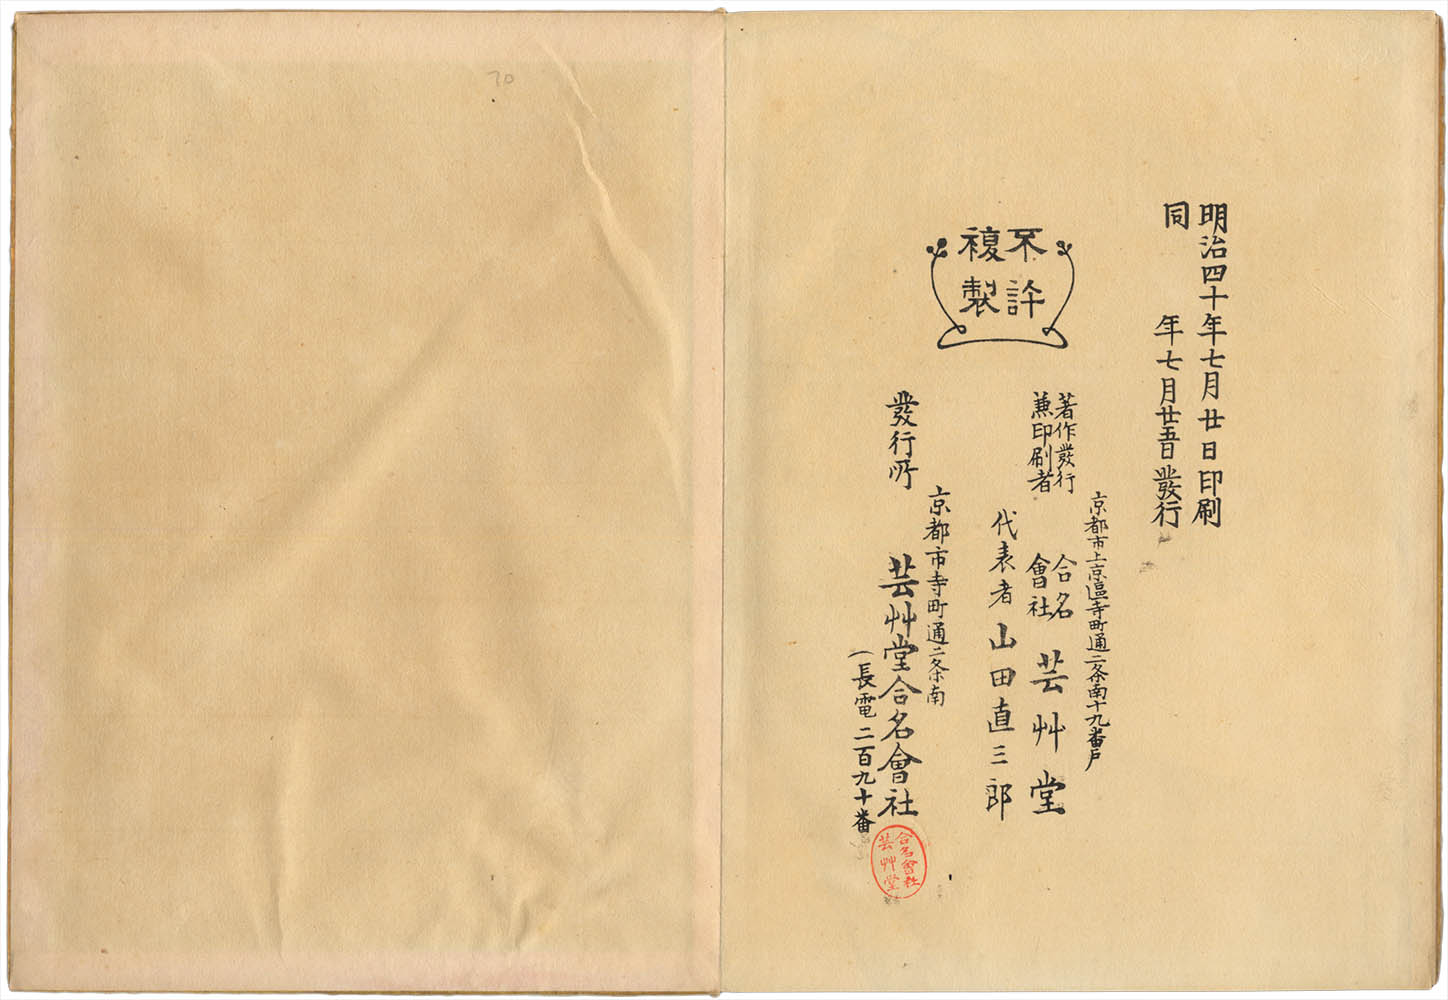 明治四十年七月廿日印刷
同年七月廿五日發行
不許
複製
京都市上京區寺町通二条南十九番戸
著作發行
兼印刷者
合名
會社
芸艸堂
代表者 山田直三郎
京都市寺町通二条南
發行所 芸艸堂合名會社
(長電二百九十番
合名會社
芸艸堂
70